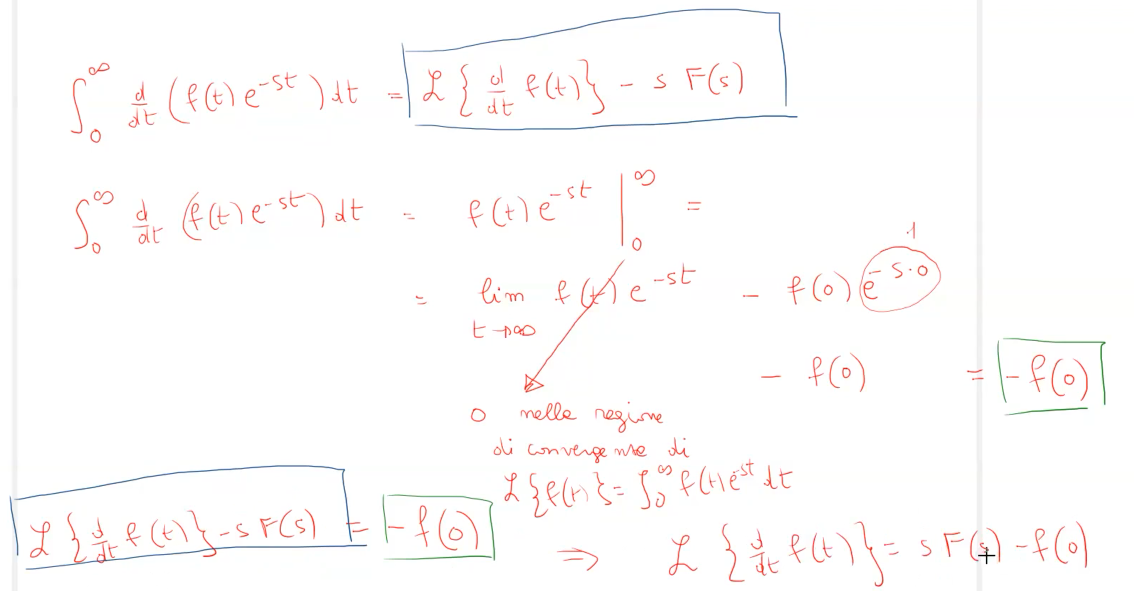 ∫₀^∞ d/dt (f(t) e^{-st}) dt = ℒ { d/dt f(t) } - s F(s)
∫₀^∞ d/dt (f(t) e^{-st}) dt = f(t) e^{-st} |₀^∞ =
1
= lim_{t→∞} f(t) e^{-st} - f(0) e^{-s·0}
- f(0) = - f(0)
0 nella regione
di convergenza di
ℒ {f(t)} = ∫₀^∞ f(t) e^{-st} dt
ℒ { d/dt f(t) } - s F(s) = - f(0)
⇒ ℒ { d/dt f(t) } = s F(s) - f(0)